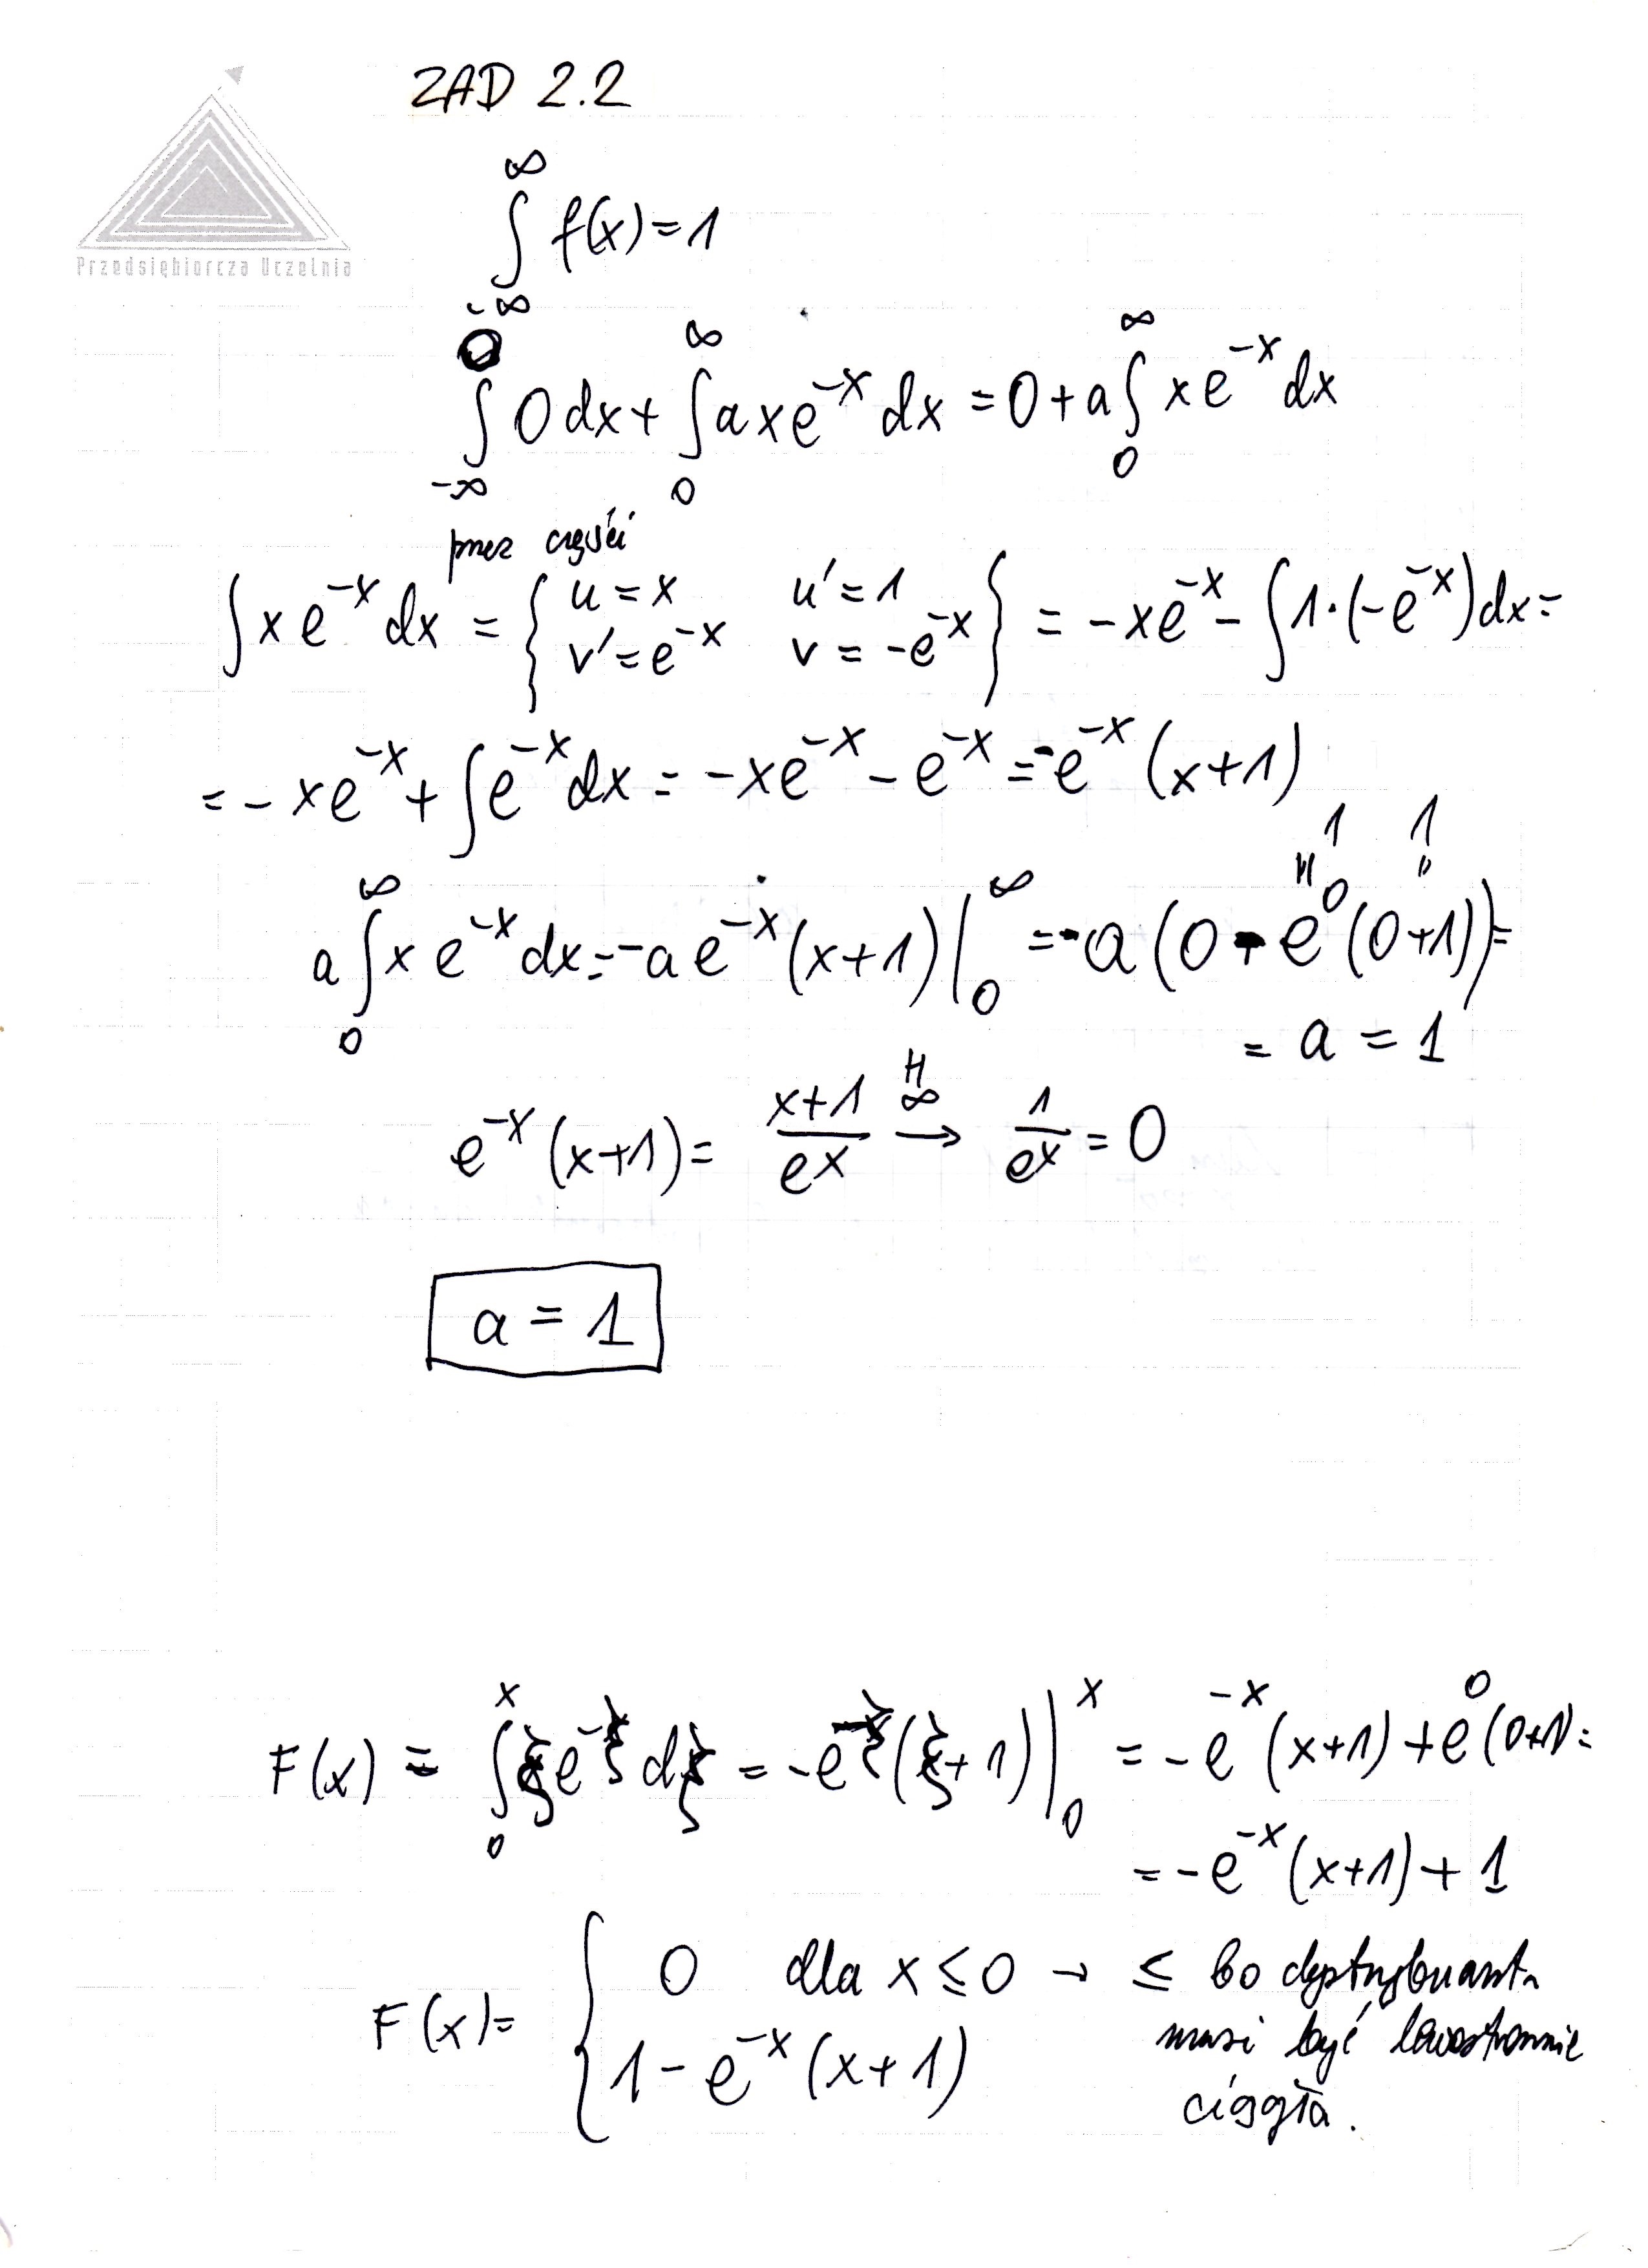 ZAD 2.2
Przedsiębiorcza Uczelnia
∞
∫ f(x) = 1
-∞
0 ∞ ∞
∫ 0 dx + ∫ a x e^{-x} dx = 0 + a ∫ x e^{-x} dx
-∞ 0 0
przez części
∫ x e^{-x} dx = { u = x u' = 1 v' = e^{-x} v = -e^{-x} } = -x e^{-x} - ∫ 1·(-e^{-x}) dx =
= -x e^{-x} + ∫ e^{-x} dx = -x e^{-x} - e^{-x} = -e^{-x} (x+1)
1 1
" "
∞ ∞
a ∫ x e^{-x} dx = -a e^{-x} (x+1) | = -a (0 - e^0 (0+1)) =
0 0
= a = 1
e^{-x} (x+1) = (x+1)/e^x →^{H ∞} 1/e^x = 0
a = 1
x x
F(x) = ∫ ξ e^{-ξ} dξ = -e^{-ξ} (ξ+1) | = -e^{-x} (x+1) + e^0 (0+1) =
0 0
= -e^{-x} (x+1) + 1
F(x) = { 0 dla x ≤ 0 → ≤ bo dystrybuanta
musi być lewostronnie
1 - e^{-x} (x+1)
ciągła.